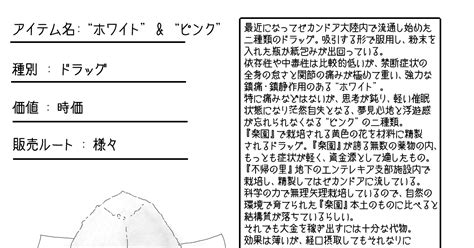 アイテム名：“ホワイト” & “ピンク”
種別：ドラッグ
価値：時価
販売ルート：様々
最近になってゼカンドア大陸内で流通し始めた
二種類のドラッグ。吸引する形で服用し、粉末を
入れた瓶か紙包みが出回っている。
依存性や中毒性は比較的低いが、禁断症状の
全身の怠さと関節の痛みが極めて重い、強力な
鎮痛・鎮静作用のある“ホワイト”。
特に痛みなどはないが、思考が鈍り、軽い催眠
状態になり茫然自失となる、夢見心地と浮遊感
が忘れられなくなる“ピンク”の二種類。
『楽園』で栽培される黄色の花を材料に精製
されるドラッグ。『楽園』が誇る無数の薬物の内、
もっとも症状が軽く、資金源として適したもの。
『不帰の里』地下のエンテレキア支部施設内で
栽培し、精製してはゼカンドアに流している。
科学の力で無理矢理栽培しているので、自然の
環境で育てられた『楽園』本土のものに比べると
結構質が落ちているらしい。
それでも大金を稼ぎ出すには十分な代物。
効果は薄いが、経口摂取してもそれなりに